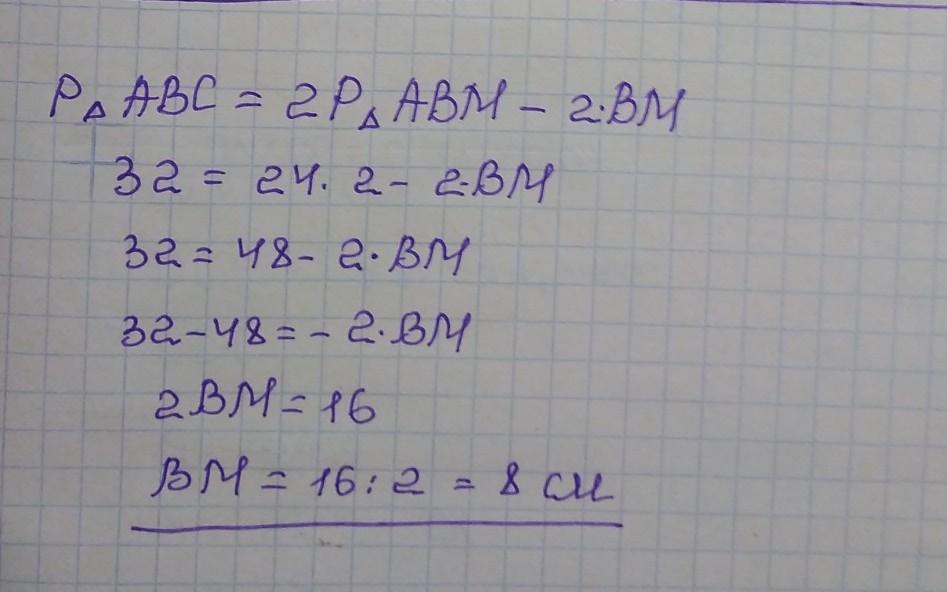 P△ ABC = 2P△ ABM - 2·BM
32 = 24· 2 - 2·BM
32 = 48 - 2·BM
32 - 48 = - 2·BM
2BM = 16
BM = 16 : 2 = 8 см